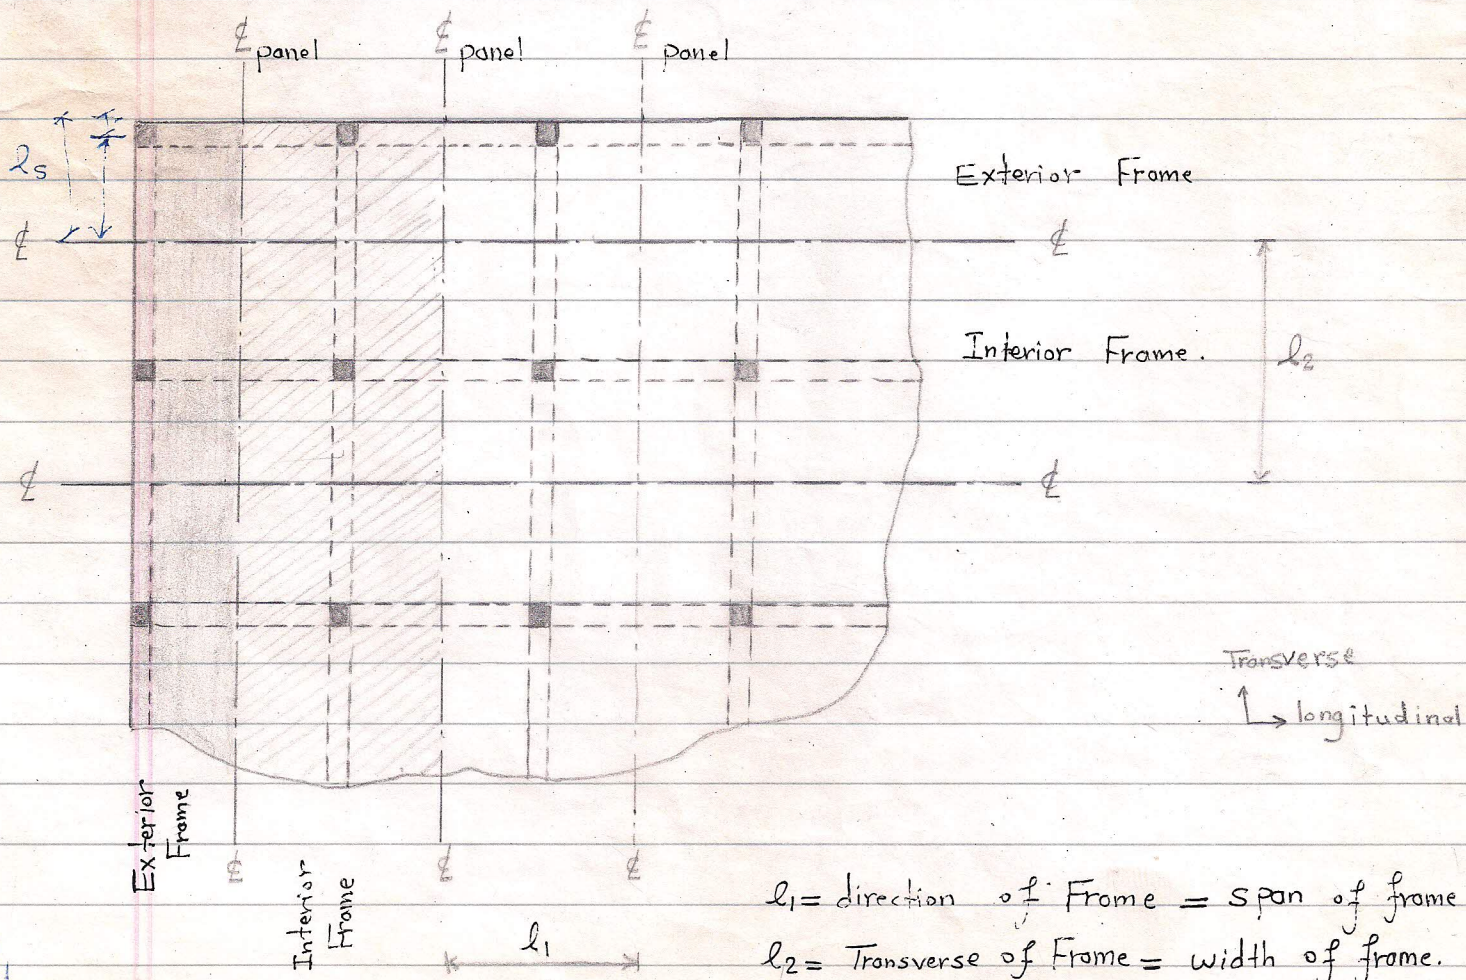 ℄ panel ℄ panel ℄ panel
ls
Exterior Frame
℄ ℄
Interior Frame. l2
℄ ℄
Transverse
longitudinal
Exterior Frame
℄ ℄ ℄
Interior Frame
l1
l1= direction of Frame = span of frame
l2= Transverse of Frame = width of frame.